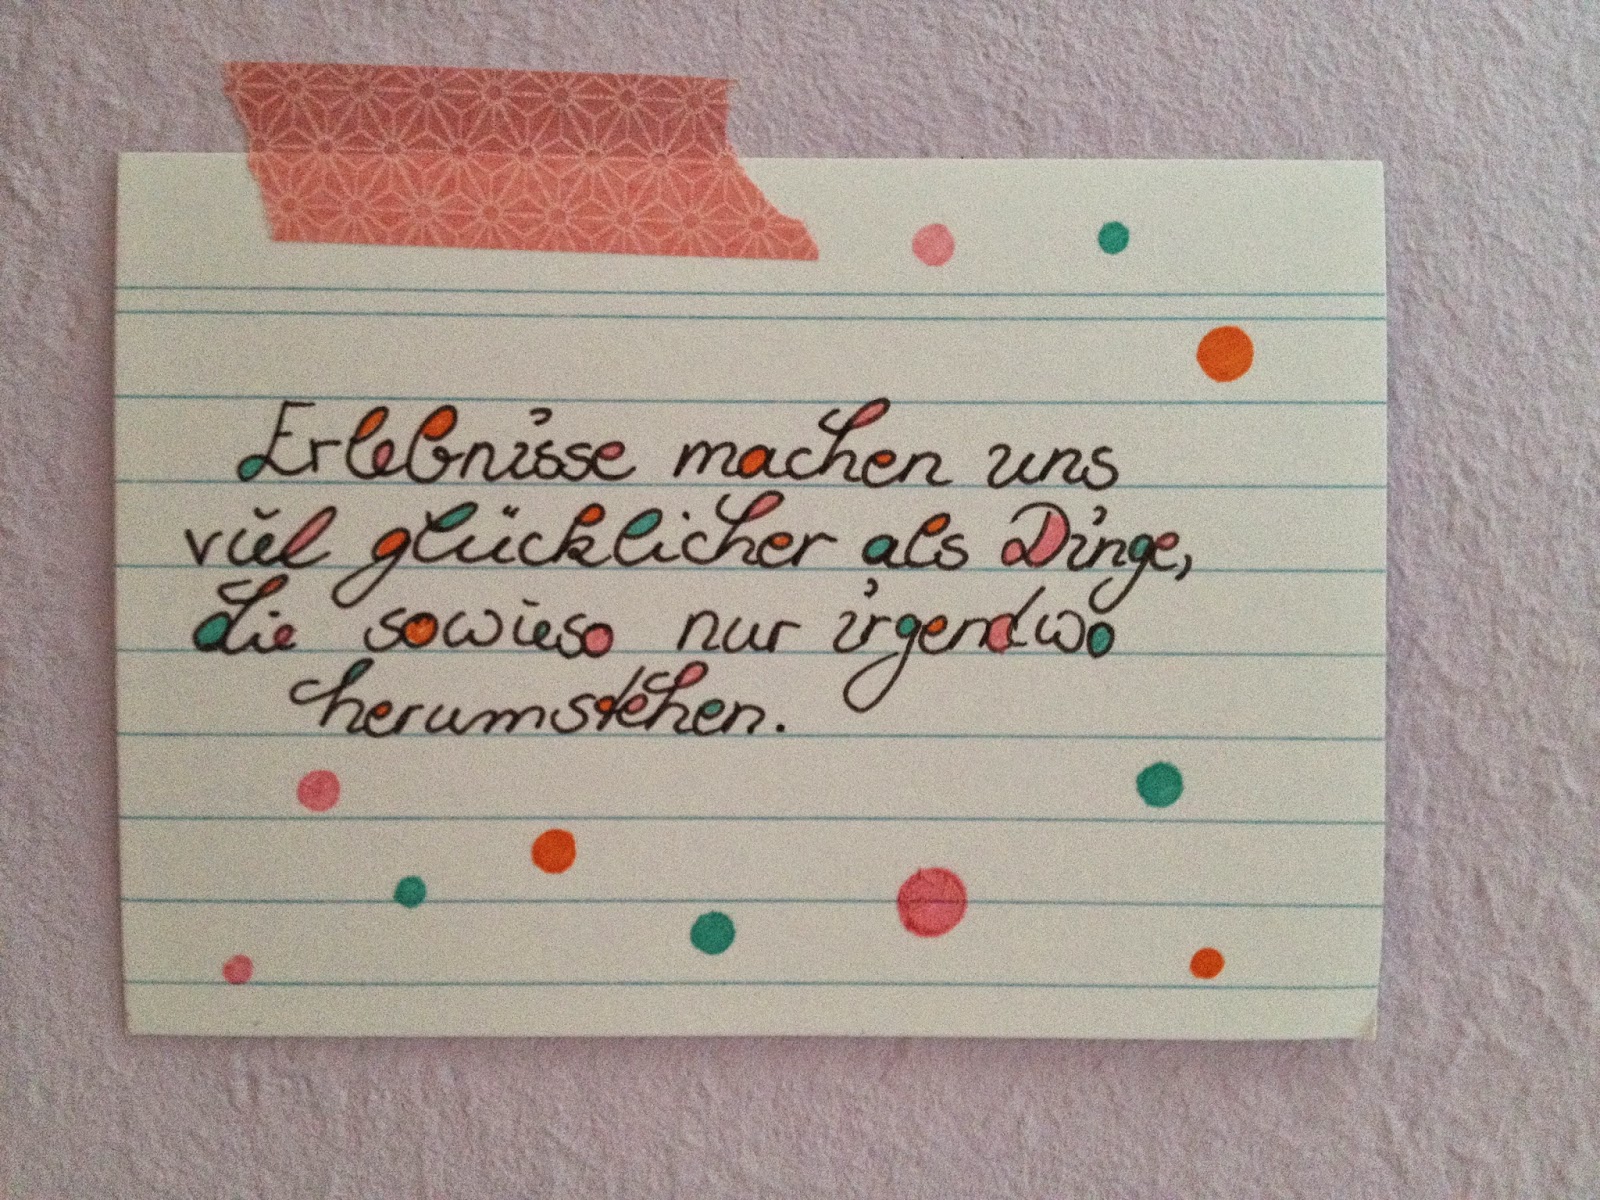 Erlebnisse machen uns
viel glücklicher als Dinge,
die sowieso nur irgendwo
herumstehen.